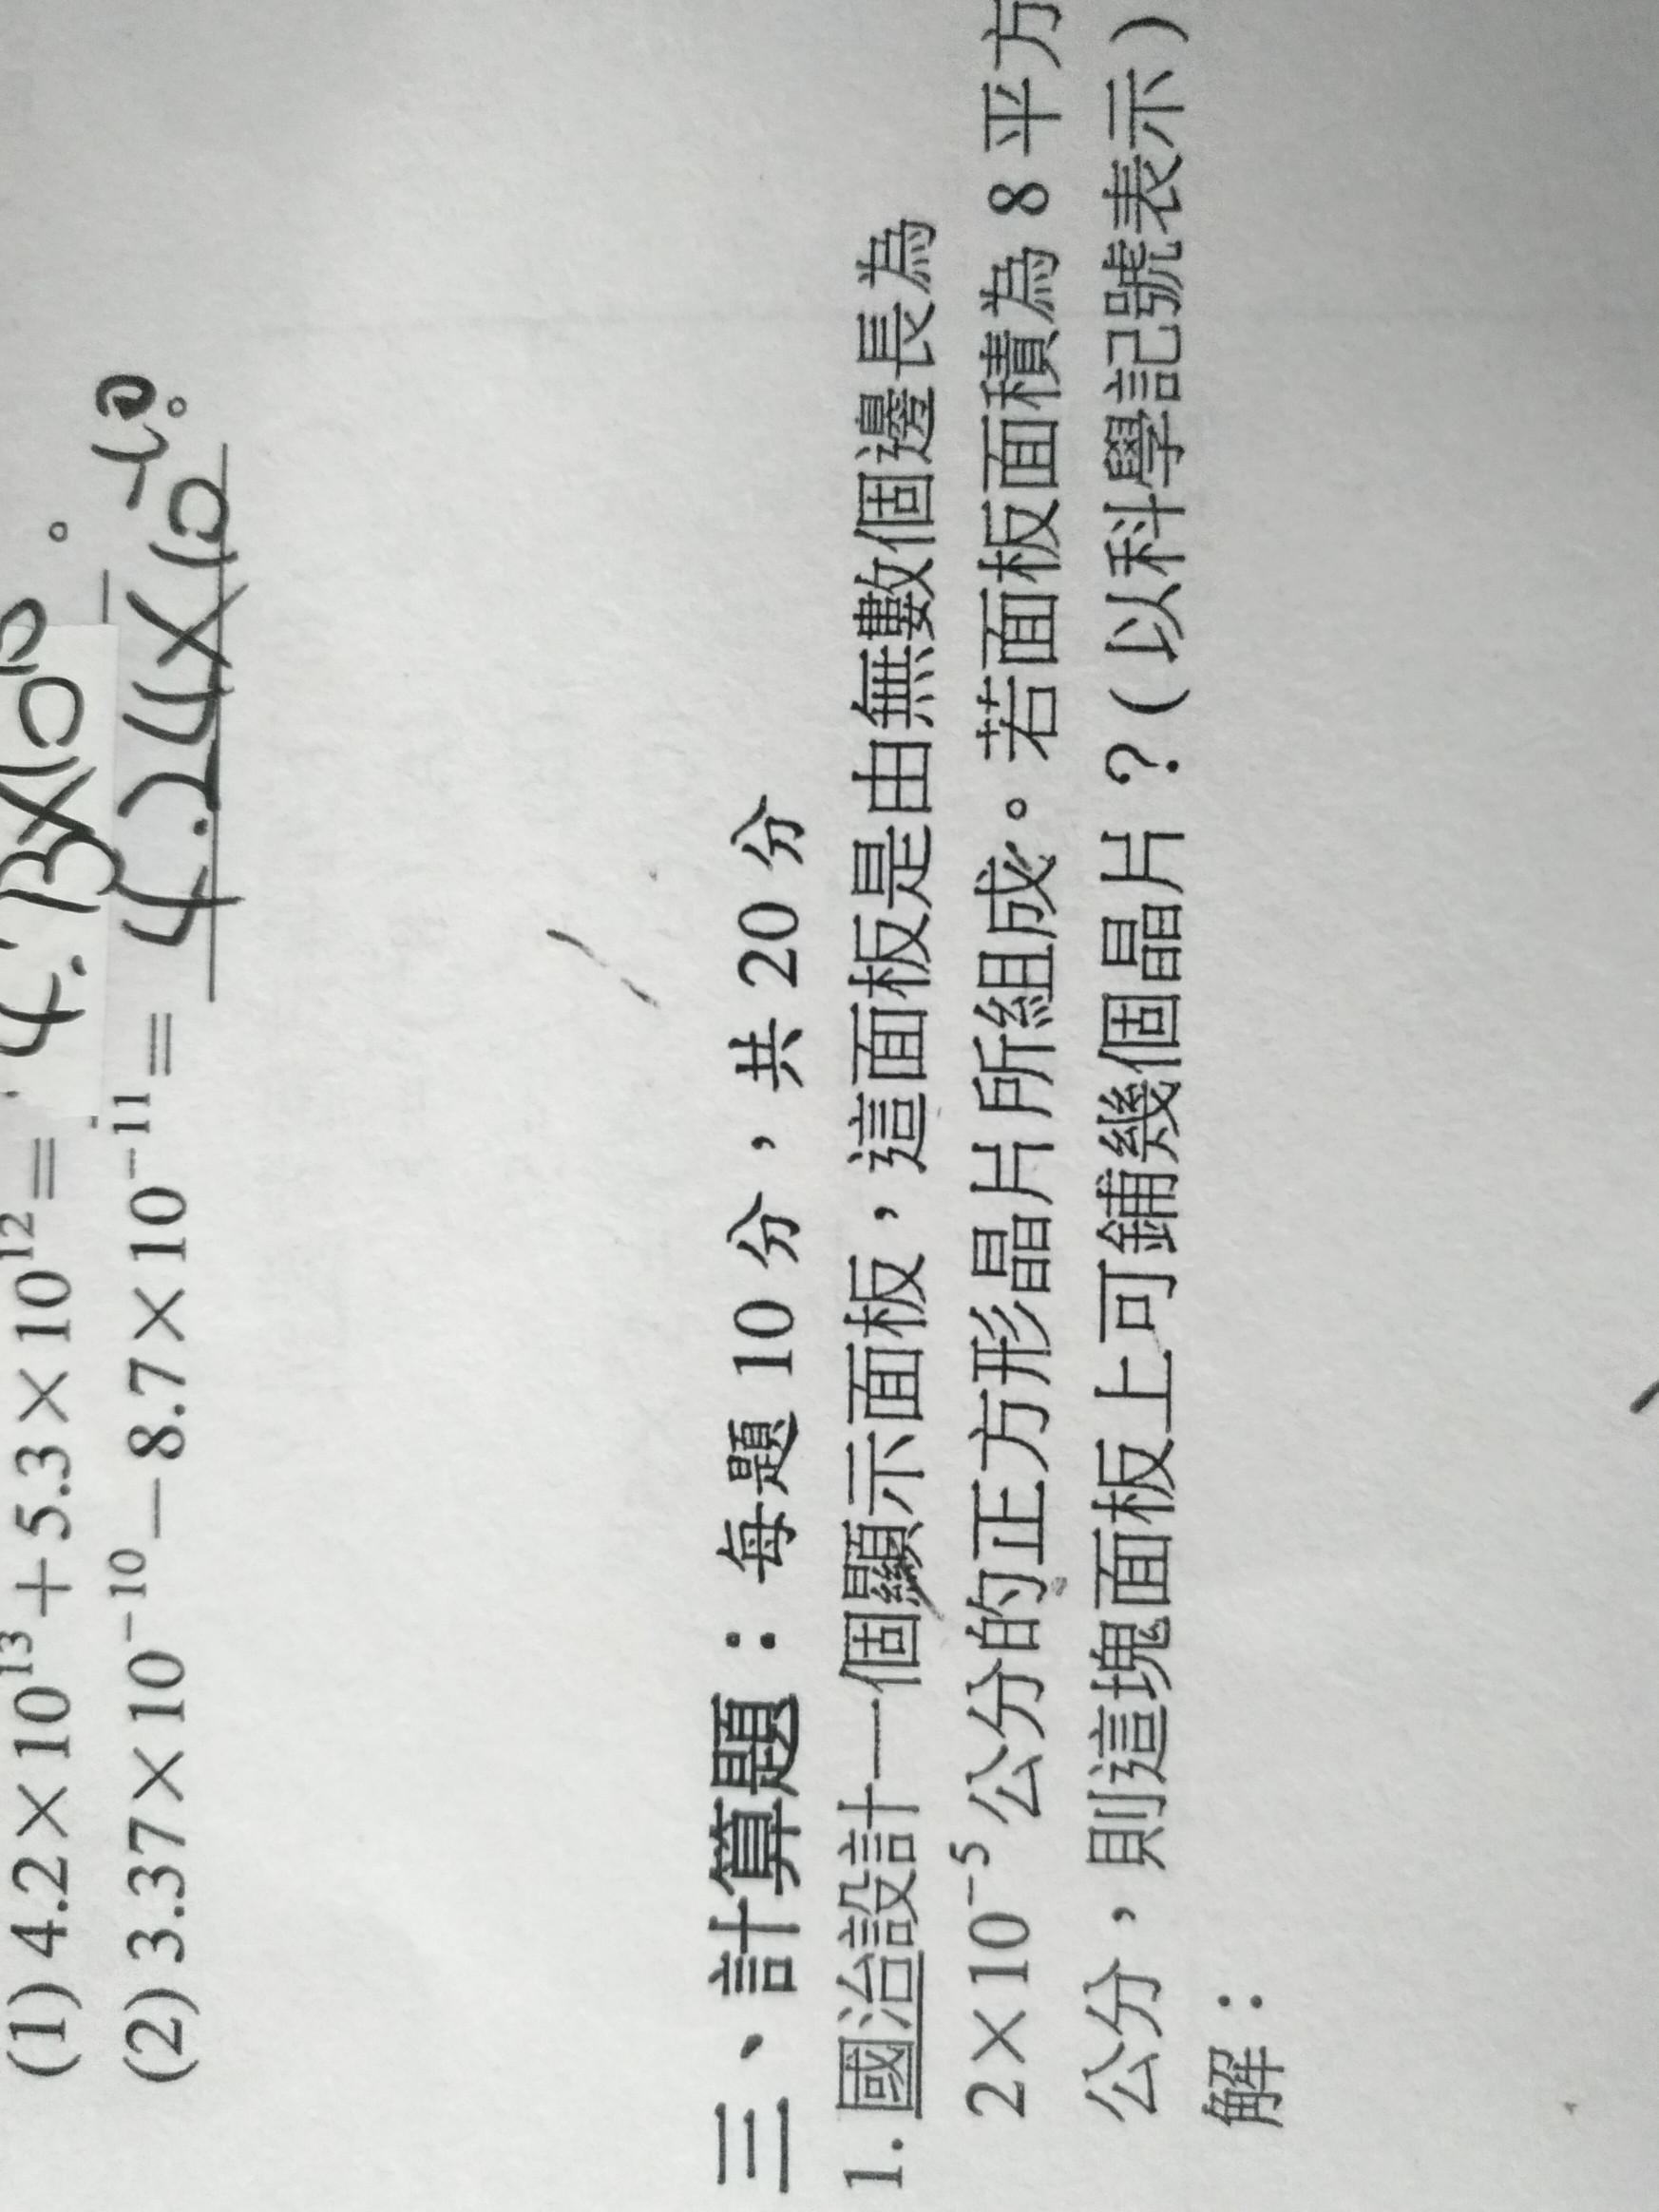 (1) 4.2×10¹³+5.3×10¹²= 4.73×10¹³。
(2) 3.37×10⁻¹⁰－8.7×10⁻¹¹= 4.24×10⁻¹⁰。
三、計算題：每題 10 分，共 20 分
1. 國治設計一個顯示面板，這面板是由無數個邊長為
2×10⁻⁵ 公分的正方形晶片所組成。若面板面積為 8 平方
公分，則這塊面板上可鋪幾個晶片？( 以科學記號表示 )
解：